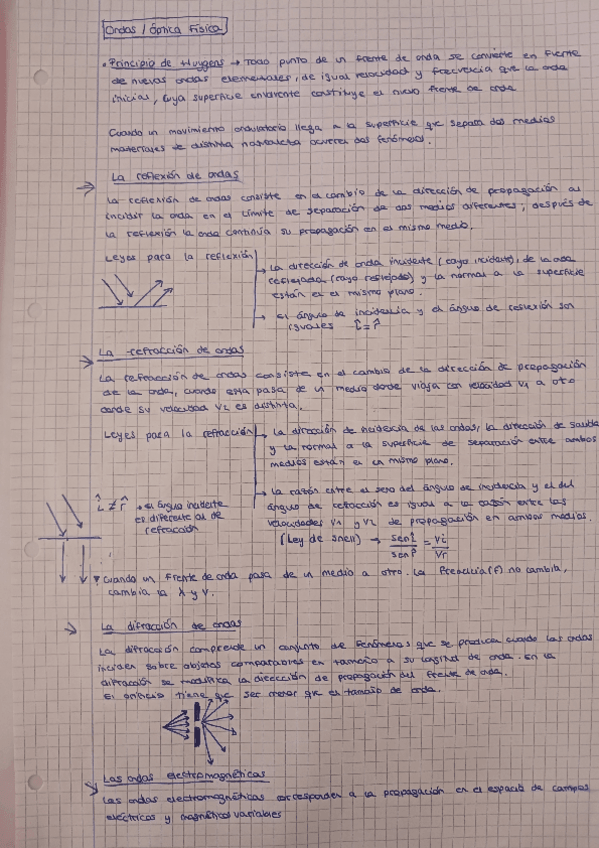 Ondas / Óptica Física
• Principio de Huygens → Todo punto de un frente de onda se convierte en fuente
de nuevas ondas elementales, de igual velocidad y frecuencia que la onda
inicial, cuya superficie envolvente constituye el nuevo frente de onda
Cuando un movimiento ondulatorio llega a la superficie que separa dos medios
materiales de distinta naturaleza ocurren dos fenómenos.
→ La reflexión de ondas
La reflexión de ondas consiste en el cambio de la dirección de propagación al
incidir la onda en el límite de separación de dos medios diferentes; después de
la reflexión la onda continúa su propagación en el mismo medio.
Leyes para la reflexión
→ La dirección de onda incidente (rayo incidente), de la onda
reflejada (rayo reflejado) y la normal a la superficie
están en el mismo plano.
→ El ángulo de incidencia y el ángulo de reflexión son
iguales î = r̂
→ La refracción de ondas
La refracción de ondas consiste en el cambio de la dirección de propagación
de la onda, cuando esta pasa de un medio donde viaja con velocidad V1 a otro
donde su velocidad V2 es distinta.
Leyes para la refracción
→ La dirección de incidencia de las ondas, la dirección de salida
y la normal a la superficie de separación entre ambos
medios están en un mismo plano.
→ La razón entre el seno del ángulo de incidencia y el del
ángulo de refracción es igual a la razón entre las
velocidades V1 y V2 de propagación en ambos medios.
(Ley de Snell) → sen î / sen r̂ = Vi / Vr
î ≠ r̂ → el ángulo incidente
es diferente al de
refracción
Cuando un frente de onda pasa de un medio a otro. La frecuencia (f) no cambia,
cambia la λ y V.
→ La difracción de ondas
La difracción comprende un conjunto de fenómenos que se producen cuando las ondas
inciden sobre objetos comparables en tamaño a su longitud de onda. En la
difracción se modifica la dirección de propagación del frente de onda.
El orificio tiene que ser menor que el tamaño de onda.
→ Las ondas electromagnéticas
Las ondas electromagnéticas corresponden a la propagación en el espacio de campos
eléctricos y magnéticos variables